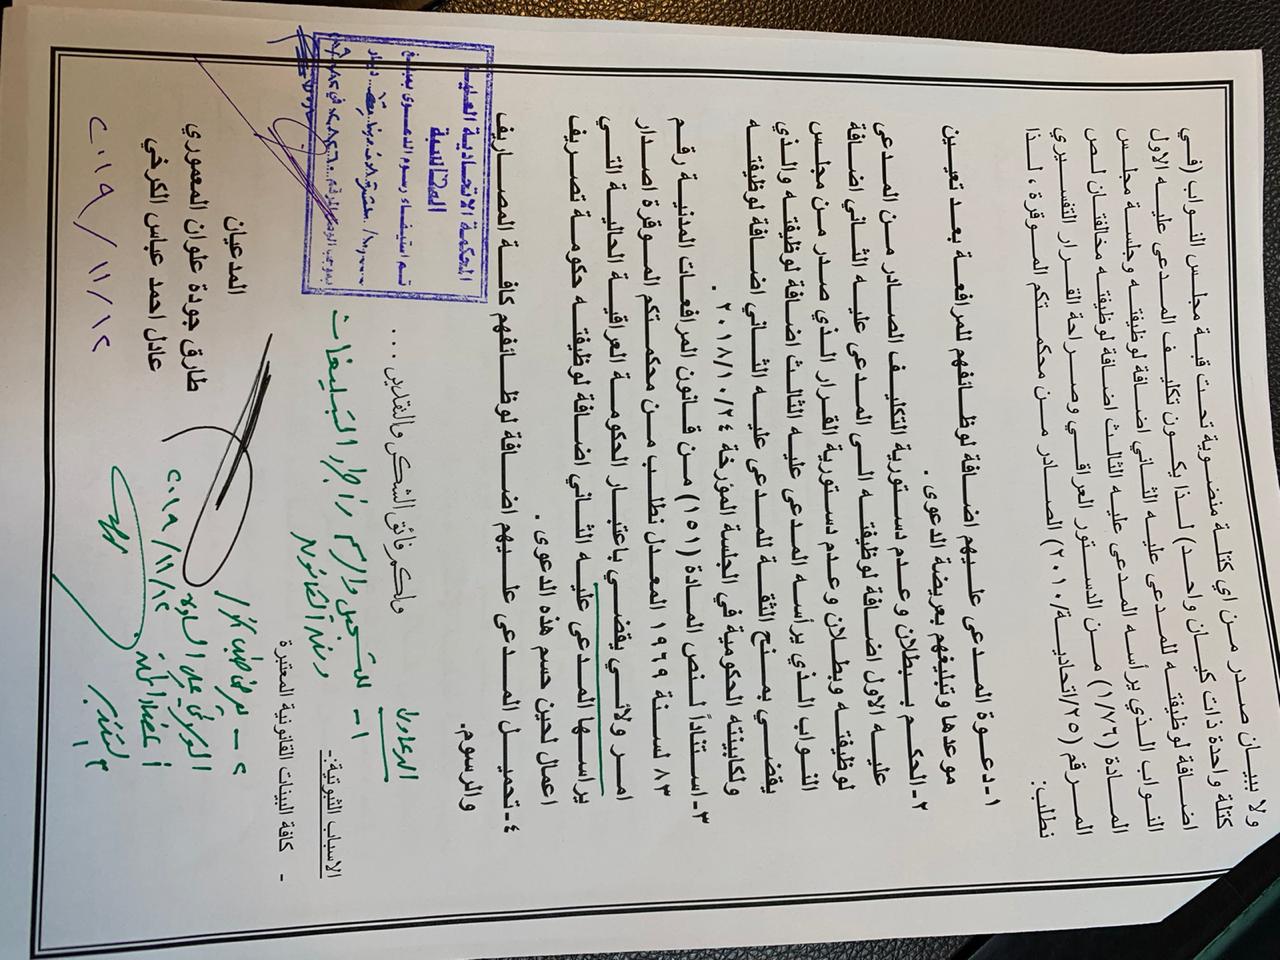 ولا ببيان صدر من اي كتلة منضوية تحت قبة مجلس النواب (في
كتلة واحدة ذات كيان واحد) لذا يكون تكليف المدعى عليه الاول
اضافة لوظيفته للمدعى عليه الثاني اضافة لوظيفته وجلسة مجلس
النواب الذي يرأسه المدعى عليه الثالث اضافة لوظيفته مخالفتان لنص
المادة (١/٧٦) من الدستور العراقي وصراحة القرار التفسيري
المرقم (٢٥/اتحادية/٢٠١٠) الصادر من محكمتكم الموقرة، لذا
نطلب:
١- دعوة المدعى عليهم اضافة لوظائفهم للمرافعة بعد تعيين
موعدها وتبليغهم بعريضة الدعوى.
٢- الحكم ببطلان وعدم دستورية التكليف الصادر من المدعى
عليه الاول اضافة لوظيفته الى المدعى عليه الثاني اضافة
لوظيفته وبطلان وعدم دستورية القرار الذي صدر من مجلس
النواب الذي يرأسه المدعى عليه الثالث اضافة لوظيفته والذي
يقضي بمنح الثقة للمدعى عليه الثاني اضافة لوظيفته
ولكابينته الحكومية في الجلسة المؤرخة ٢٠١٨/١٠/٢٤ .
٣- استناداً لنص المادة (١٥١) من قانون المرافعات المدنية رقم
٨٣ لسنة ١٩٦٩ المعدل نطلب من محكمتكم الموقرة اصدار
امر ولائي يقضي باعتبار الحكومة العراقية الحالية التي
يراسها المدعى عليه الثاني اضافة لوظيفته حكومة تصريف
اعمال لحين حسم هذه الدعوى .
٤- تحميل المدعى عليهم اضافة لوظائفهم كافة المصاريف
والرسوم.
ولكم فائق الشكر والتقدير ...
المحكمة الاتحادية العليا
المحاسبة
تم استيفاء رسوم الدعوى بمبلغ
دينار
بموجب الوصل المرقم
الاسباب الثبوتية:-
- كافة البينات القانونية المعتبرة
١- للتسجيل واجراء التبليغات
وفق القانون
المدعيان
طارق جودة علوان المعموري
عادل احمد عباس الكرخي
٢٠١٩/١١/١٢
٢٠١٩/١١/١٢